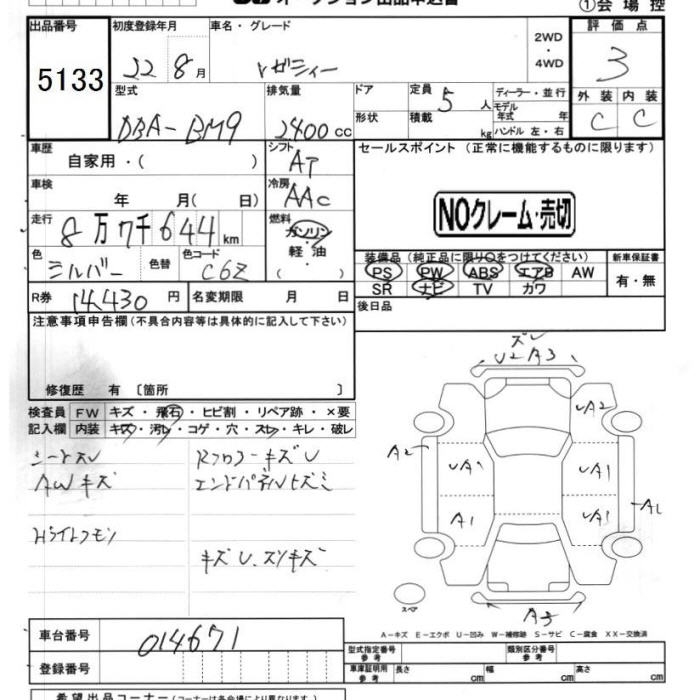 オークション出品申込書
①会場控
出品番号
5133
初度登録年月
22 8月
車名・グレード
レガシィー
2WD
・
4WD
評価点
3
型式
DBA-BM9
排気量
2400cc
ドア
形状
定員
5人
積載
kg
ディーラー・並行
モデル
年式 年
ハンドル 左・右
外装 内装
C C
車歴
自家用・( )
シフト
AT
セールスポイント (正常に機能するものに限ります)
車検
年 月( 日)
冷房
AAC
NOクレーム・売切
走行
8万7千644km
燃料
ガソリン
・
軽油
( )
色
シルバー
色替
色コード
C6Z
装備品(純正品に限り○をつけてください)
PS PW ABS エアB AW
SR ナビ TV カワ
新車保証書
有・無
R券 14,430円
名変期限 月 日
後日品
注意事項申告欄(不具合内容等は具体的に記入して下さい)
修復歴 有 〔箇所 〕
検査員
記入欄
FW キズ・飛石・ヒビ割・リペア跡・×要
内装 キズ・汚レ・コゲ・穴・スレ・キレ・破レ
シートスレ
AWキズ
Hライトクモリ
RフロアーキズU
エンドパネルヒズミ
キズU、スリキズ
ズレ
U2 A3
UA2
A2
UA1
UA1
A1
UA1
A1
A3
スペア
A-キズ E-エクボ U-凹み W-補修跡 S-サビ C-腐食 XX-交換済
車台番号
014671
登録番号
型式指定番号
参考
類別区分番号
参考
車庫証明用
参考
長さ cm
幅 cm
高さ cm
希望出品コーナー(コーナーは各会場により異なります)